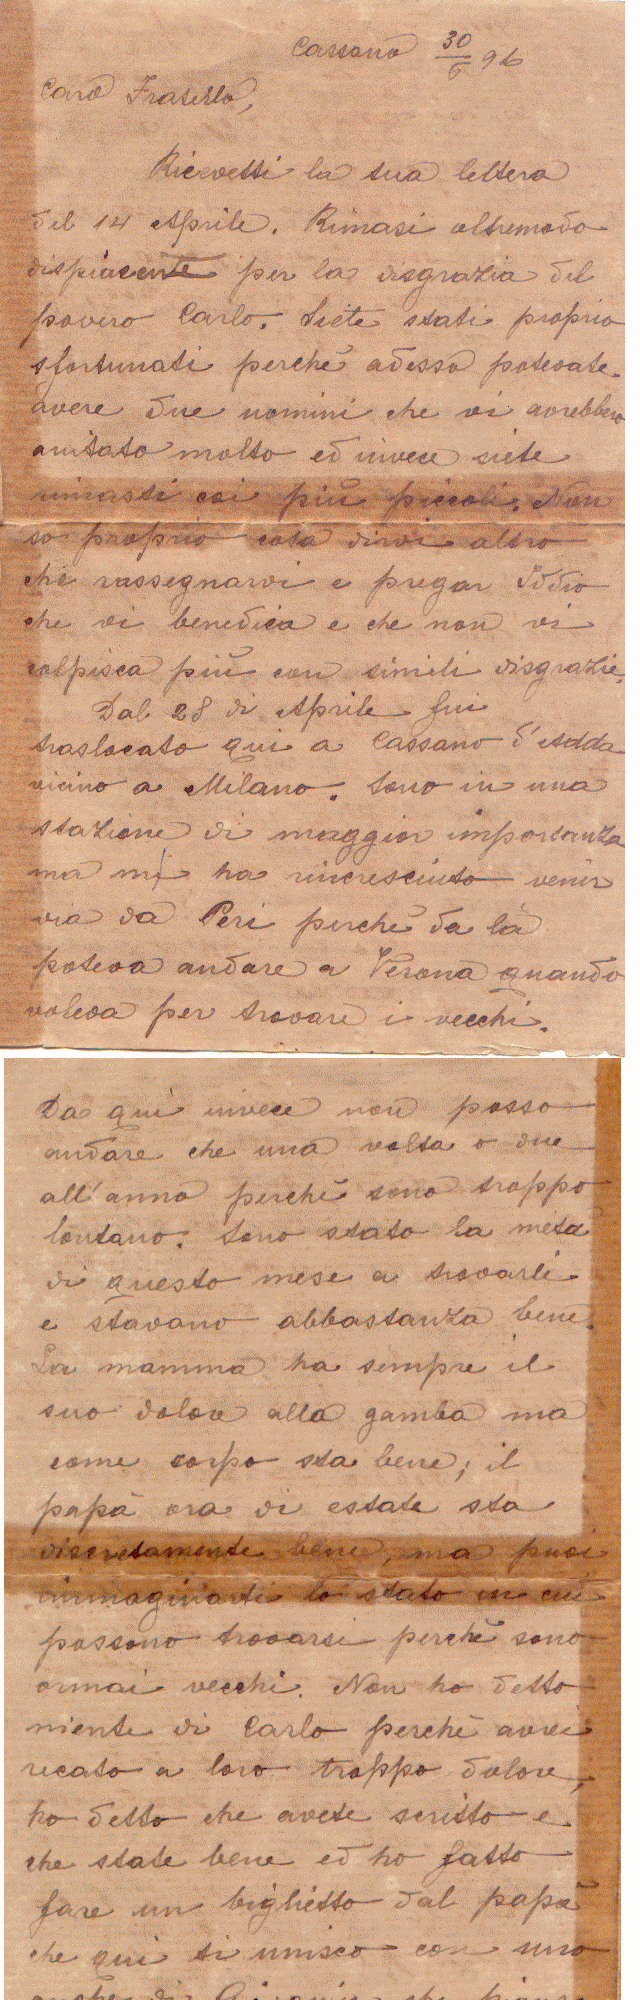 Cassano 30/6 96
Caro Fratello,
Ricevetti la tua lettera
del 14 Aprile. Rimasi oltremodo
dispiacente per la disgrazia del
povero Carlo. Siete stati proprio
sfortunati perchè adesso potevate
avere due uomini che vi avrebbero
aiutato molto ed invece siete
rimasti coi più piccoli. Non
so proprio cosa dirvi altro
che rassegnarvi e pregar Iddio
che vi benedica e che non vi
colpisca più con simili disgrazie.
Dal 28 di Aprile fui
traslocato qui a Cassano d'Adda
vicino a Milano. Sono in una
stazione di maggior importanza
ma mi ha rincresciuto venir
via da Peri perchè da là
poteva andare a Verona quando
voleva per trovare i vecchi.
Da qui invece non posso
andare che una volta o due
all'anno perchè sono troppo
lontano. Sono stato la metà
di questo mese a trovarli
e stavano abbastanza bene.
La mamma ha sempre il
suo dolore alla gamba ma
come corpo sta bene; il
papà ora di estate sta
discretamente bene, ma puoi
immaginarti lo stato in cui
possono trovarsi perchè sono
ormai vecchi. Non ho detto
niente di Carlo perchè avrei
recato a loro troppo dolore,
ho detto che avete scritto e
che state bene ed ho fatto
fare un biglietto dal papà
che qui ti unisco con uno
anche di